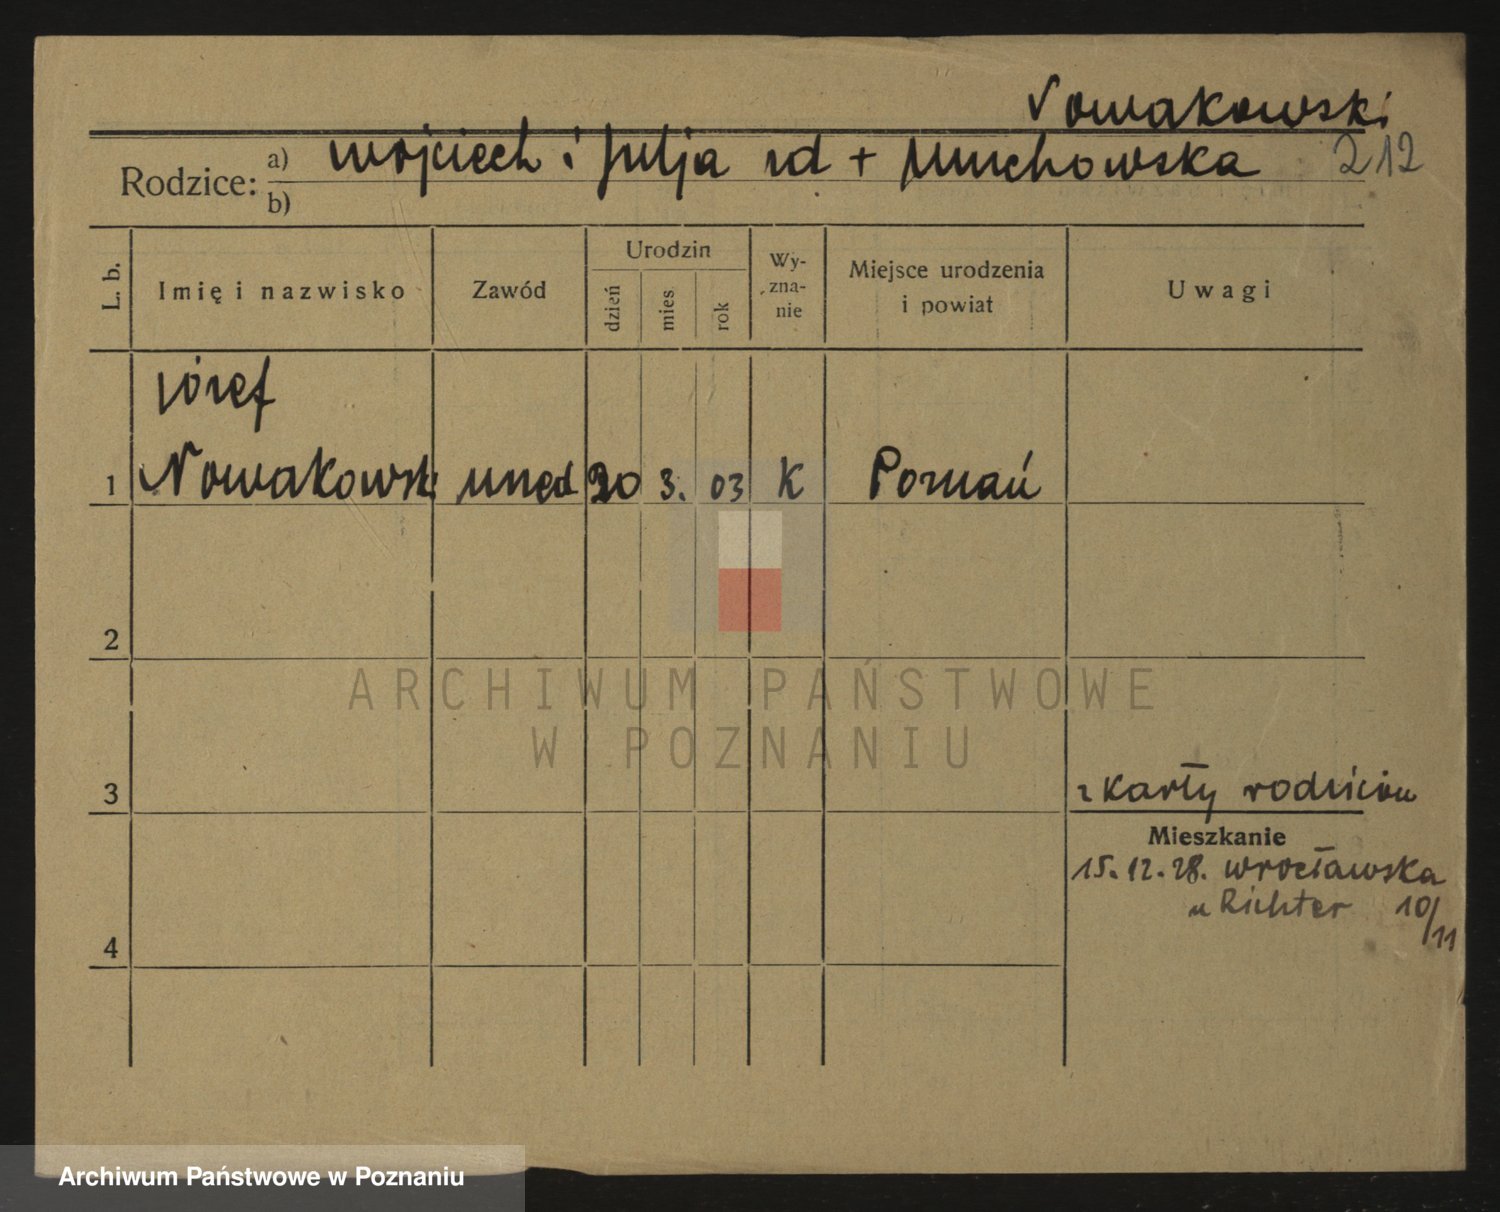 Nowakowski
Rodzice: a) Wojciech i Julja zd + Muchowska 212
b)
L. b. Imię i nazwisko Zawód Urodzin dzień mies rok Wy-
zna-
nie Miejsce urodzenia
i powiat Uwagi
Józef
1 Nowakowski urzęd 20 3. 03 K Poznań
2
ARCHIWUM PAŃSTWOWE
W POZNANIU
3 z karty rodziców
Mieszkanie
15.12.28. Wrocławska
u Richter 10/11
4
Archiwum Państwowe w Poznaniu